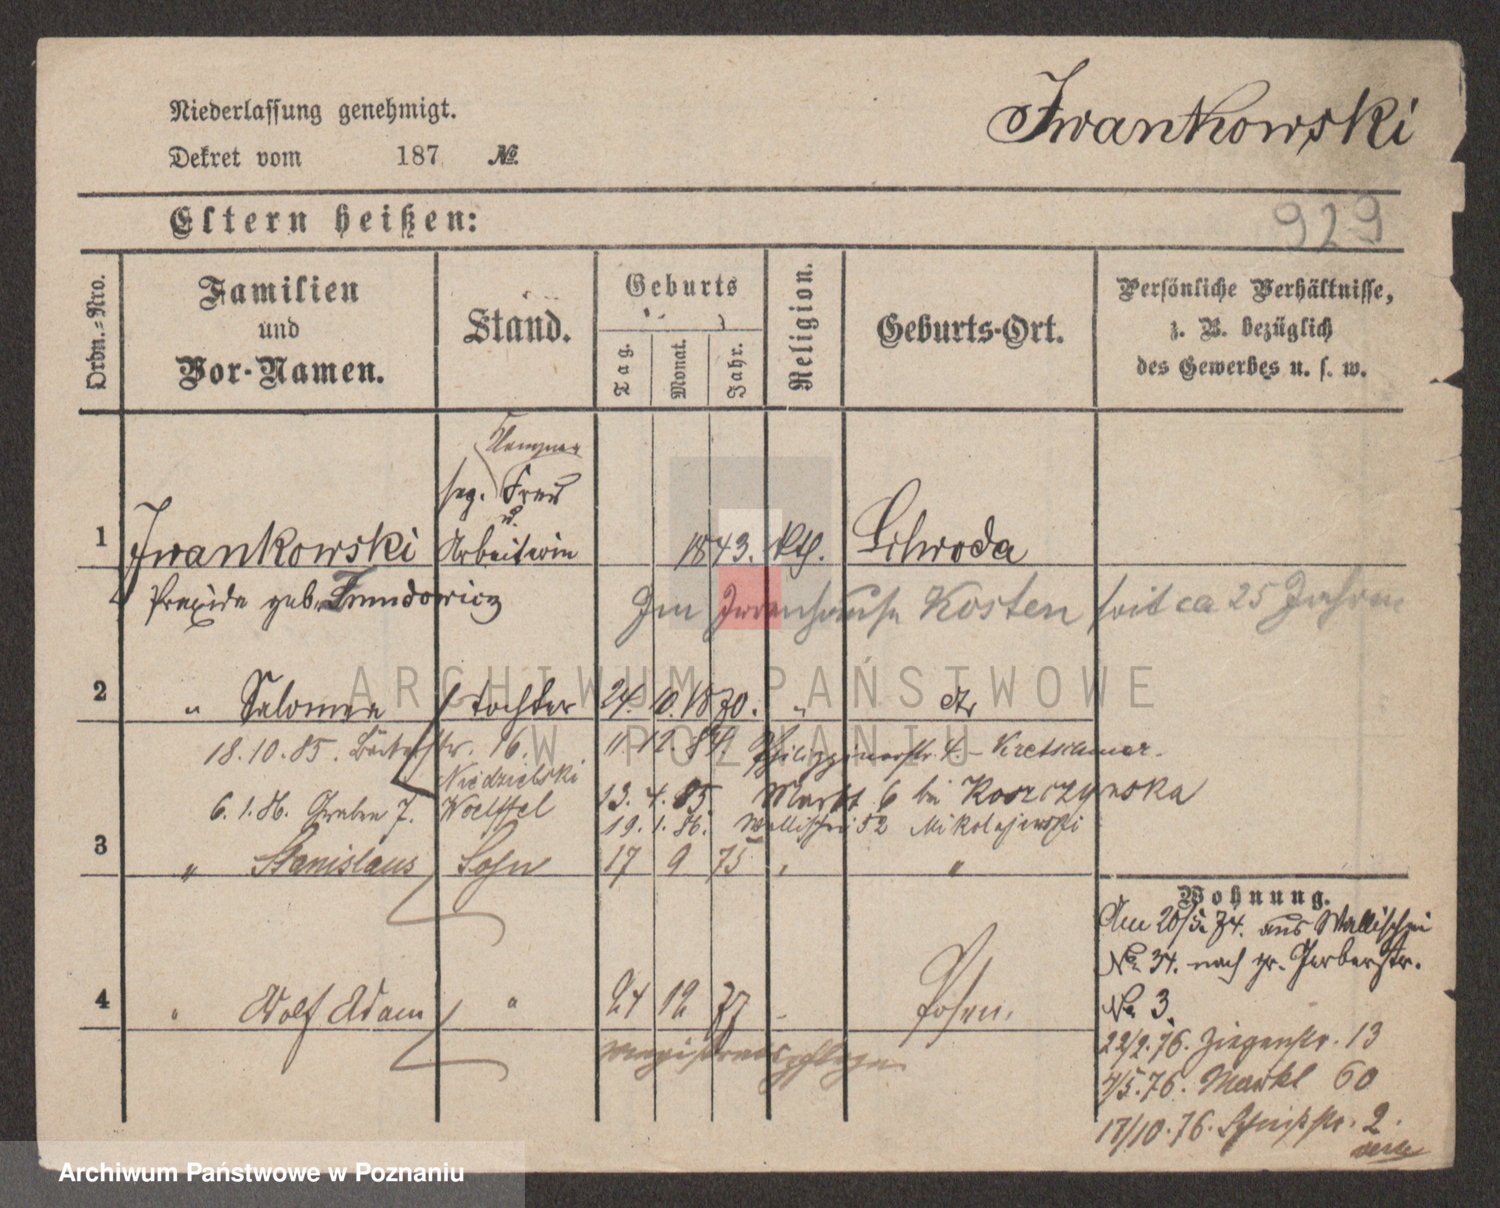 Niederlassung genehmigt.
Dekret vom 187 No.
Iwankowski
Eltern heißen:
929
Ordn.-Nro.
Familien
und
Vor-Namen.
Stand.
Geburts
Tag.
Monat.
Jahr.
Religion.
Geburts-Ort.
Persönliche Verhältnisse,
z. B. bezüglich
des Gewerbes u. s. w.
Klempner
sep. Frau
u.
1 Iwankowski Arbeiterin 1843. kth. Schroda
Praxida geb.
Im Irrenhause Kosten seit ca 25 Jahren
ARCHIWUM PAŃSTWOWE
W POZNANIU
2 " Salomea Tochter 24. 10. 1870. " do
18.10.85. 16. 11.12.84. Philippinerstr. 4. - Kretschmer.
Niedzielski
6.1.86. Graben 7. Woelffel 13.4.85. Markt 6 bei Koszczynska
19.1.86. Wallischei 52 Mikolajewski
3 " Stanislaus Sohn 17 9 75 " "
Wohnung.
Am 20/5. 74. aus Wallischei
No. 34. nach gr. Gerberstr.
No 3.
4 " Adolf Adam " 24 12 77 " Posen.
Magistratspflege
22/2.76. Ziegenstr. 13
4/5.76. Markt 60
17/10.76. 2.
verte
Archiwum Państwowe w Poznaniu